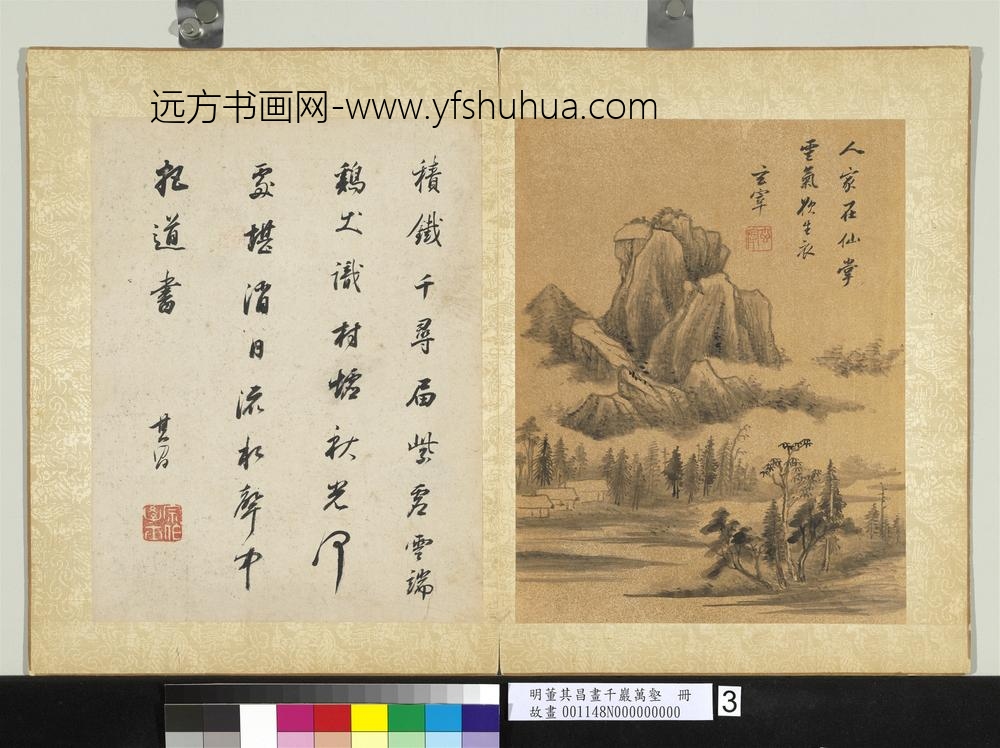 远方书画网-www.yfshuhua.com
人家在仙掌
雲氣欲生衣
玄宰
積鐵千尋屆紫虛雲端
鷄犬識村墟秋光何
處堪消日流水聲中
把道書
其昌
明董其昌畫千巖萬壑 冊
故畫 001148N000000000
3